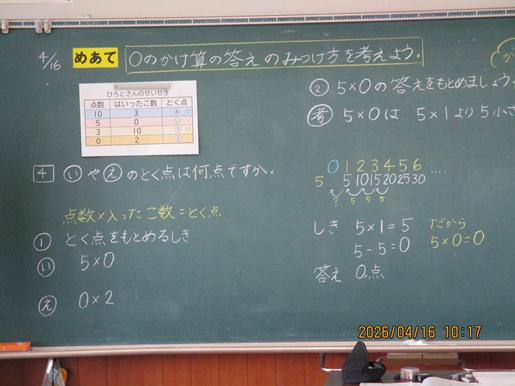 4/16 めあて 0のかけ算の答えのみつけ方を考えよう。
ひろとさんのせいせき
点数 はいったこ数 とく点
10 3
5 0
3 10
0 2
4 いやえのとく点は何点ですか。
点数×入ったこ数=とく点
① とく点をもとめるしき
い 5×0
え 0×2
② 5×0の答えをもとめましょう
考 5×0は、5×1より5小さ
0 1 2 3 4 5 6 ....
5 5 10 15 20 25 30
? 5 5 5
しき 5×1=5 だから
5-5=0 5×0=0
答え 0点
2026/04/16 10:17